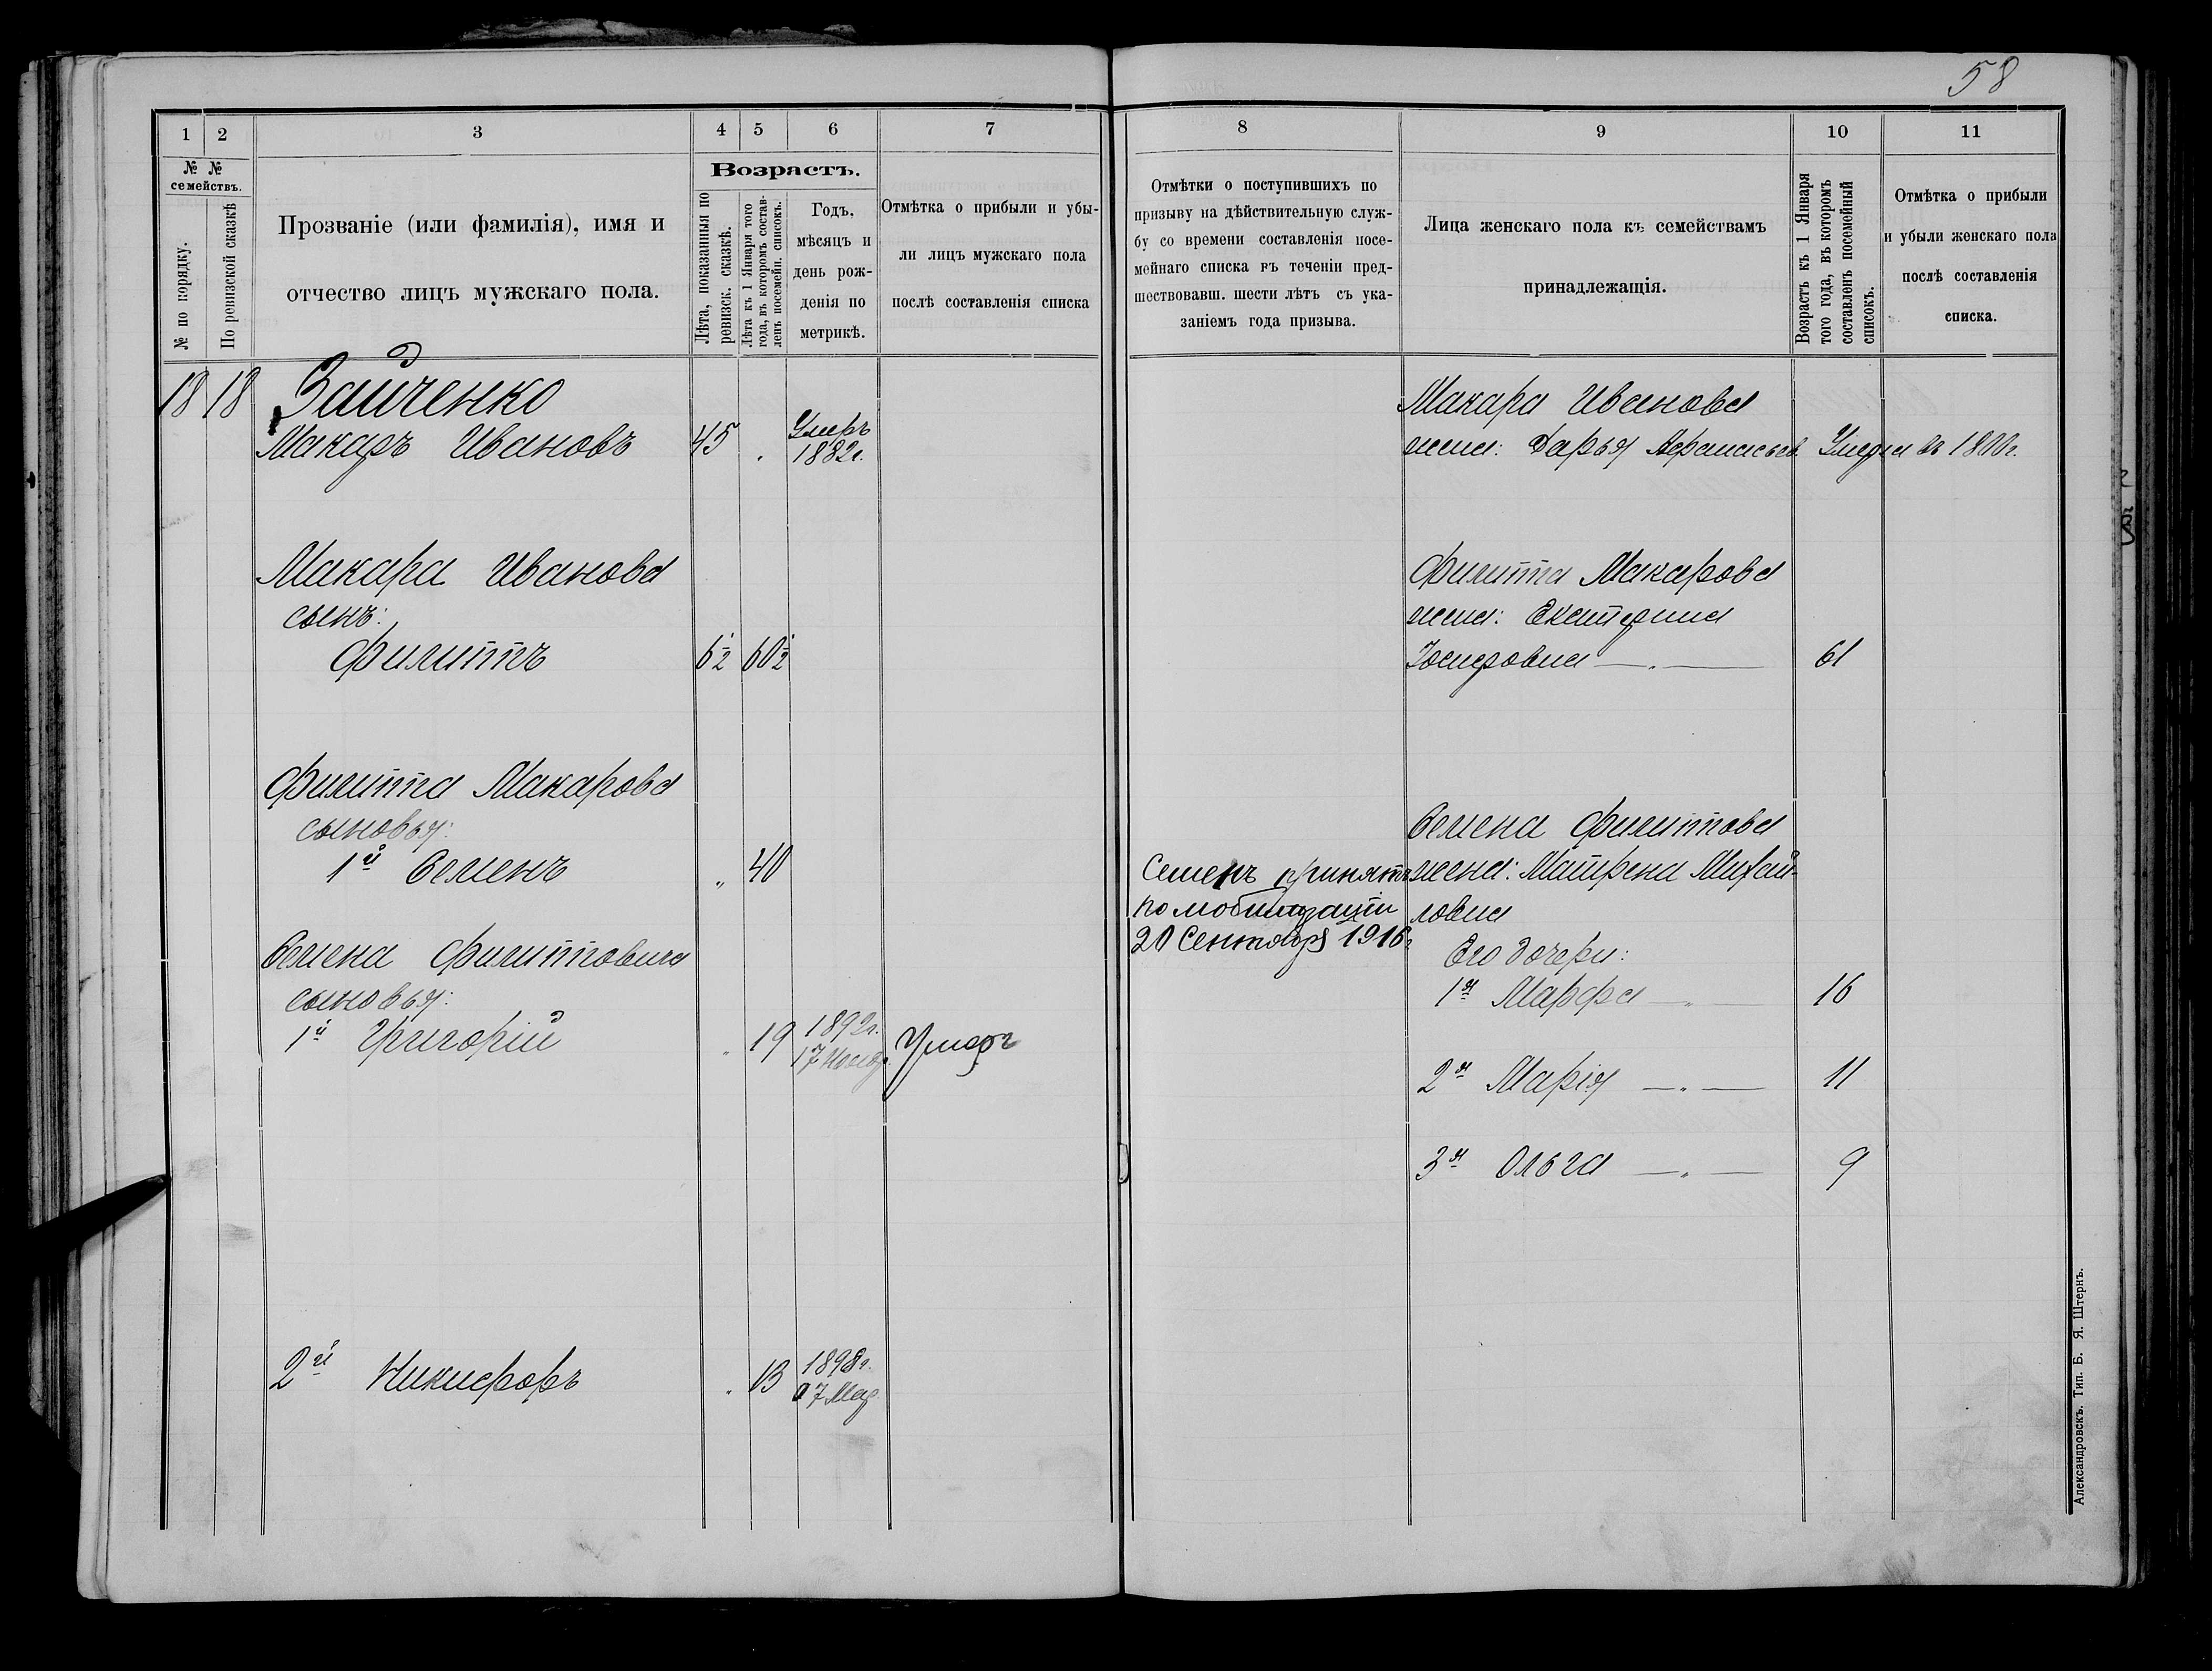 58
1 2 3 4 5 6 7
№ №
семействъ.
№ по порядку.
По ревизской сказкѣ
Прозваніе (или фамилія), имя и
отчество лицъ мужскаго пола.
Возрастъ.
Лѣта, показанныя по
ревизск. сказкѣ.
Лѣта къ 1 Января того
года, въ которомъ состав-
ленъ посемейн. списокъ.
Годъ,
мѣсяцъ и
день рож-
денія по
метрикѣ.
Отмѣтка о прибыли и убы-
ли лицъ мужскаго пола
послѣ составленія списка
18 18 Зайченко
Макаръ Ивановъ 45 Умеръ
1882г.
Макара Иванова
сынъ:
Филиппъ 6½ 60½
Филиппа Макарова
сыновья:
1й Семенъ „ 40
Семена Филипповича
сыновья:
1й Григорій „ 19 1892г.
17 Нояб. Умеръ
2й Никифоръ „ 13 1898г.
7 Мар.
8 9 10 11
Отмѣтки о поступившихъ по
призыву на дѣйствительную служ-
бу со времени составленія посе-
мейнаго списка въ теченіи пред-
шествовавш. шести лѣтъ съ ука-
заніемъ года призыва.
Лица женскаго пола къ семействамъ
принадлежащія.
Возрастъ къ 1 Января
того года, въ которомъ
составленъ посемейный
списокъ.
Отмѣтка о прибыли
и убыли женскаго пола
послѣ составленія
списка.
Макара Иванова
жена: Дарья Афанасьев. Умерла въ
Филиппа Макарова
жена: Екатерина
Іосифовна — „ — 61
Семена Филиппова
жена: Матрена Михай-
ловна
Семенъ принятъ
по мобилизаціи
20 Сентября 1916г
Его дочери:
1я Марфа — „ — 16
2я Марія — „ — 11
3я Ольга — „ — 9
Александровскъ. Тип. Б. Я. Штернъ.